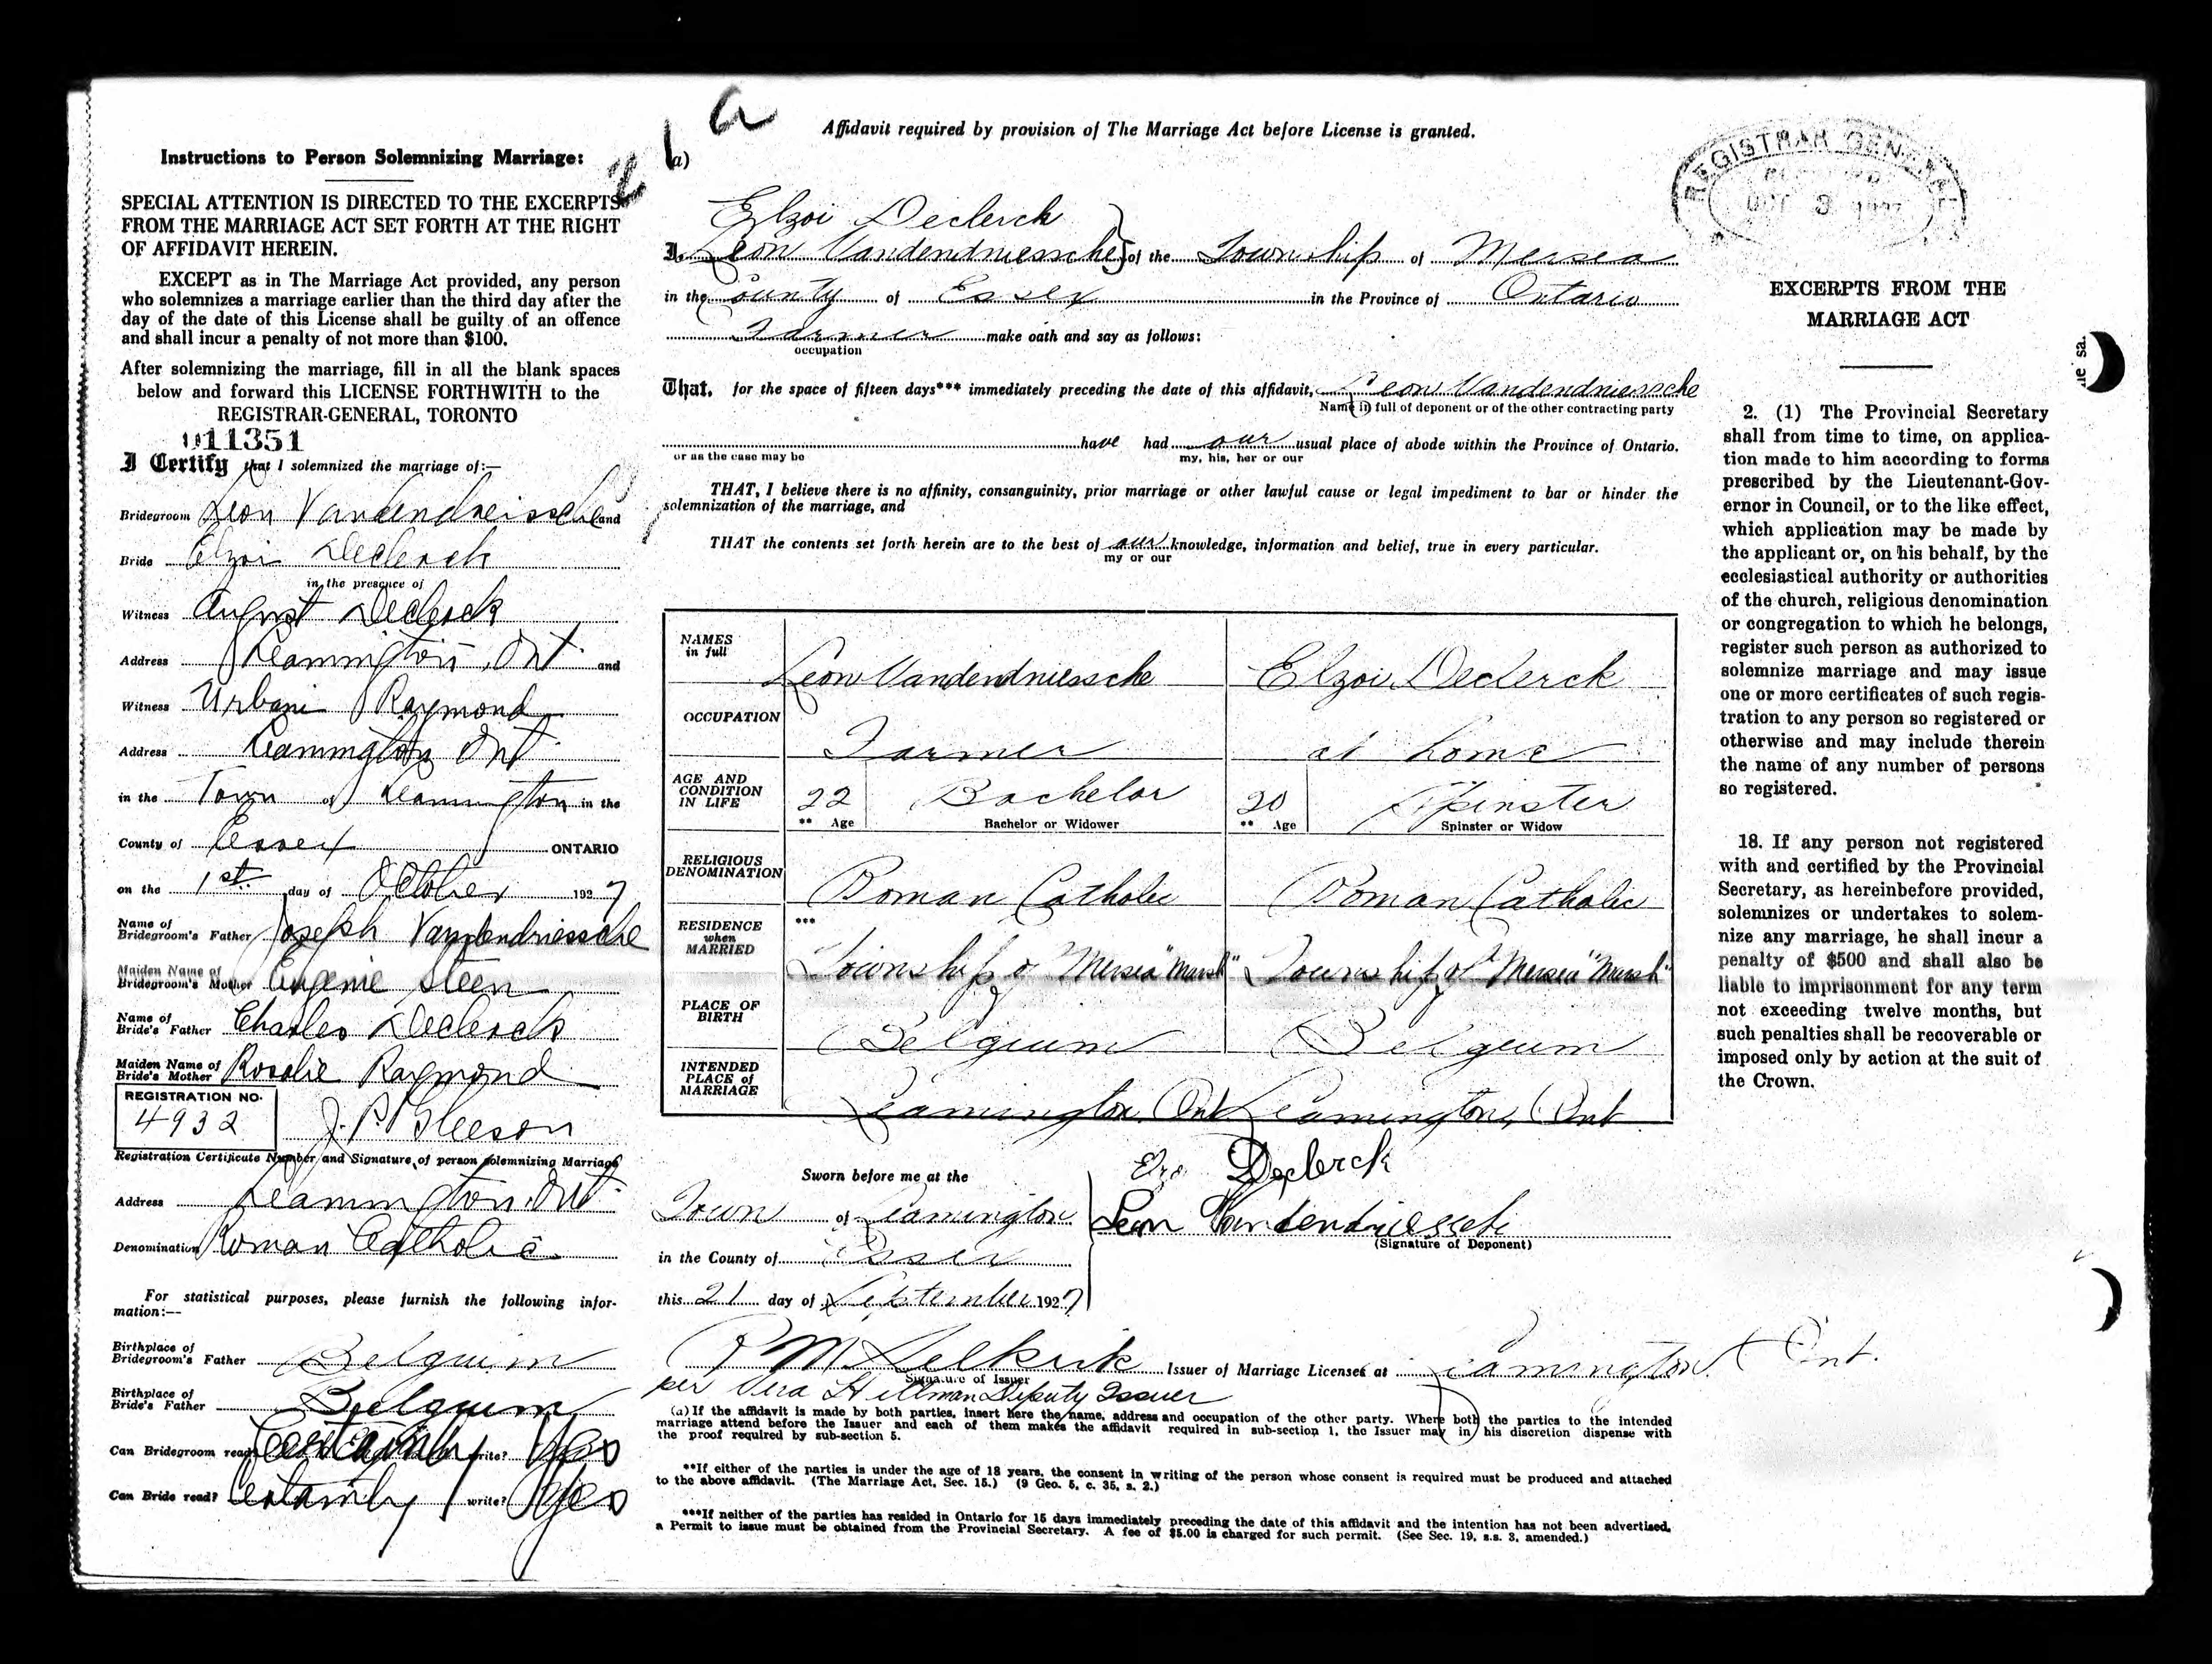 Instructions to Person Solemnizing Marriage:
SPECIAL ATTENTION IS DIRECTED TO THE EXCERPTS
FROM THE MARRIAGE ACT SET FORTH AT THE RIGHT
OF AFFIDAVIT HEREIN.
EXCEPT as in The Marriage Act provided, any person
who solemnizes a marriage earlier than the third day after the
day of the date of this License shall be guilty of an offence
and shall incur a penalty of not more than $100.
After solemnizing the marriage, fill in all the blank spaces
below and forward this LICENSE FORTHWITH to the
REGISTRAR-GENERAL, TORONTO
011351
I Certify that I solemnized the marriage of:—
Bridegroom Leon Vandendreissche and
Bride Elzoi Declerck
in the presence of
Witness August Declerck
Address Leamington, Ont. and
Witness Urbani Raymond
Address Leamington Ont.
in the Town of Leamington in the
County of Essex ONTARIO
on the 1st day of October 1927
Name of
Bridegroom's Father Joseph Vandendriessche
Maiden Name of
Bridegroom's Mother Eugenie Steen
Name of
Bride's Father Charles Declerck
Maiden Name of
Bride's Mother Rosalie Raymond
REGISTRATION NO.
4932 J. P. Gleeson
Registration Certificate Number and Signature of person solemnizing Marriage
Address Leamington, Ont.
Denomination Roman Catholic
For statistical purposes, please furnish the following infor-
mation:—
Birthplace of
Bridegroom's Father Belguim
Birthplace of
Bride's Father Belguim
Can Bridegroom read? Certainly write? Yes
Can Bride read? Certainly write? Yes
a
Affidavit required by provision of The Marriage Act before License is granted.
(a)
Elzoi Declerck
I, Leon Vandendriessche of the Township of Mersea
in the County of Essex in the Province of Ontario
Farmer make oath and say as follows:
occupation
That, for the space of fifteen days*** immediately preceding the date of this affidavit, Leon Vandendriessche
Name in full of deponent or of the other contracting party
have had our usual place of abode within the Province of Ontario.
or as the case may be my, his, her or our
THAT, I believe there is no affinity, consanguinity, prior marriage or other lawful cause or legal impediment to bar or hinder the
solemnization of the marriage, and
THAT the contents set forth herein are to the best of our knowledge, information and belief, true in every particular.
my or our
NAMES
in full Leon Vandendriessche Elzoi Declerck
OCCUPATION Farmer at home
AGE AND
CONDITION
IN LIFE 22 Bachelor 20 Spinster
** Age Bachelor or Widower ** Age Spinster or Widow
RELIGIOUS
DENOMINATION Roman Catholic Roman Catholic
RESIDENCE
when
MARRIED *** Township of Mersea "Marsh" Township of Mersea "Marsh"
PLACE OF
BIRTH Belgium Belgium
INTENDED
PLACE of
MARRIAGE Leamington, Ont Leamington, Ont
Sworn before me at the
Town of Leamington
in the County of Essex
this 21 day of September 1927
Declerck
Leon Vandendriessche
(Signature of Deponent)
P M Selkirk Issuer of Marriage Licenses at Leamington Ont.
Signature of Issuer
per Vera Hillman Deputy Issuer
(a) If the affidavit is made by both parties, insert here the name, address and occupation of the other party. Where both the parties to the intended
marriage attend before the Issuer and each of them makes the affidavit required in sub-section 1, the Issuer may in his discretion dispense with
the proof required by sub-section 5.
**If either of the parties is under the age of 18 years, the consent in writing of the person whose consent is required must be produced and attached
to the above affidavit. (The Marriage Act, Sec. 15.) (9 Geo. 5, c. 35, s. 2.)
***If neither of the parties has resided in Ontario for 15 days immediately preceding the date of this affidavit and the intention has not been advertised,
a Permit to issue must be obtained from the Provincial Secretary. A fee of $5.00 is charged for such permit. (See Sec. 19, s.s. 3, amended.)
REGISTRAR GENERAL
OCT 3 1927
EXCERPTS FROM THE
MARRIAGE ACT
2. (1) The Provincial Secretary
shall from time to time, on applica-
tion made to him according to forms
prescribed by the Lieutenant-Gov-
ernor in Council, or to the like effect,
which application may be made by
the applicant or, on his behalf, by the
ecclesiastical authority or authorities
of the church, religious denomination
or congregation to which he belongs,
register such person as authorized to
solemnize marriage and may issue
one or more certificates of such regis-
tration to any person so registered or
otherwise and may include therein
the name of any number of persons
so registered.
18. If any person not registered
with and certified by the Provincial
Secretary, as hereinbefore provided,
solemnizes or undertakes to solem-
nize any marriage, he shall incur a
penalty of $500 and shall also be
liable to imprisonment for any term
not exceeding twelve months, but
such penalties shall be recoverable or
imposed only by action at the suit of
the Crown.